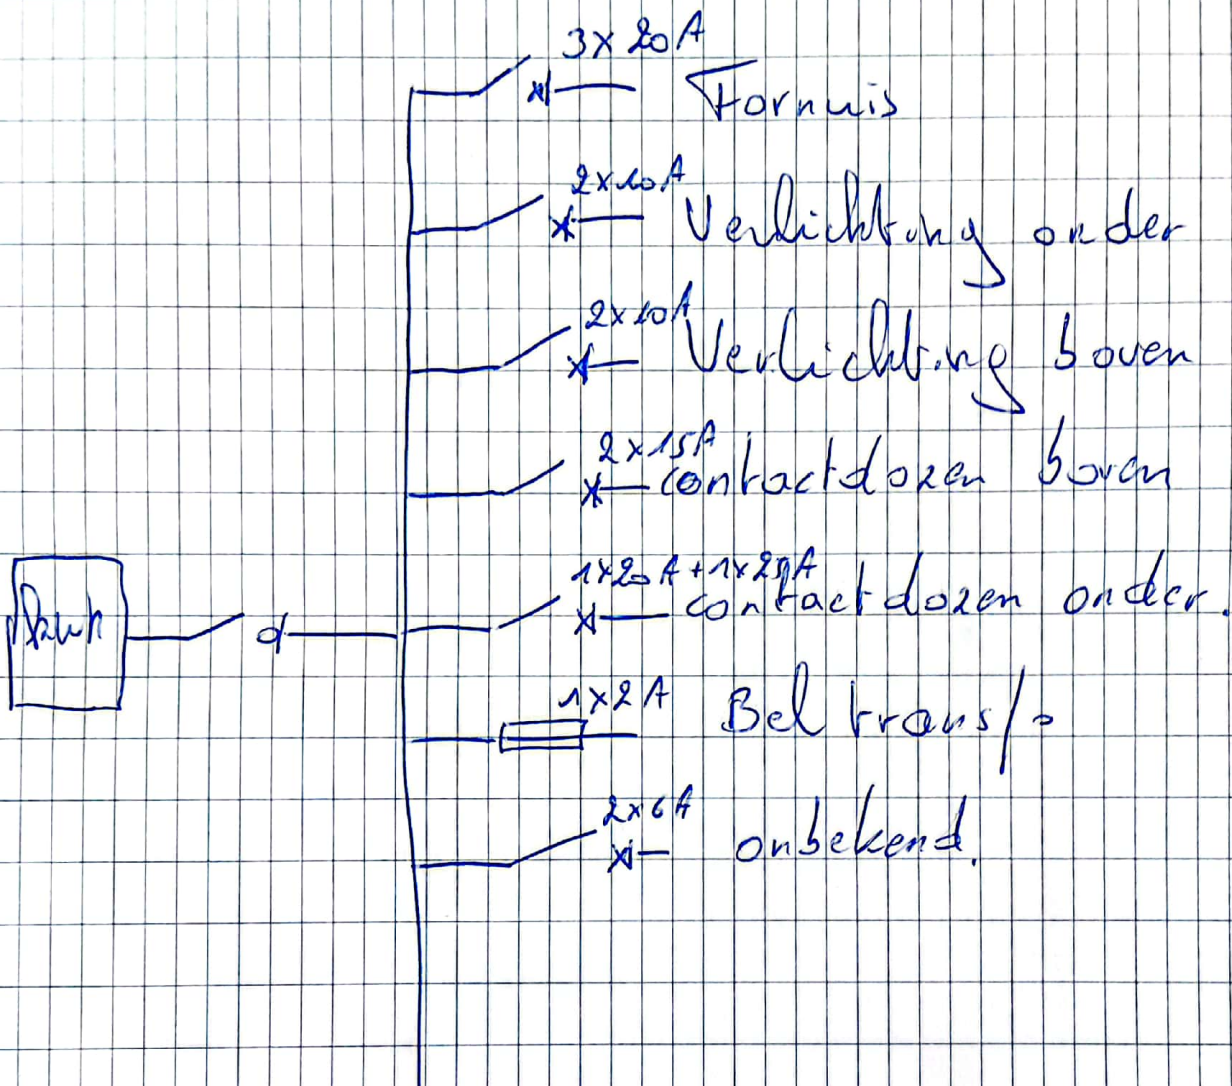 3x20A
Fornuis
2x10A
Verlichting onder
2x10A
Verlichting boven
2x15A
contactdozen boven
1x20A+1x25A
contactdozen onder.
1x2A
Bel transfo
2x6A
onbekend.